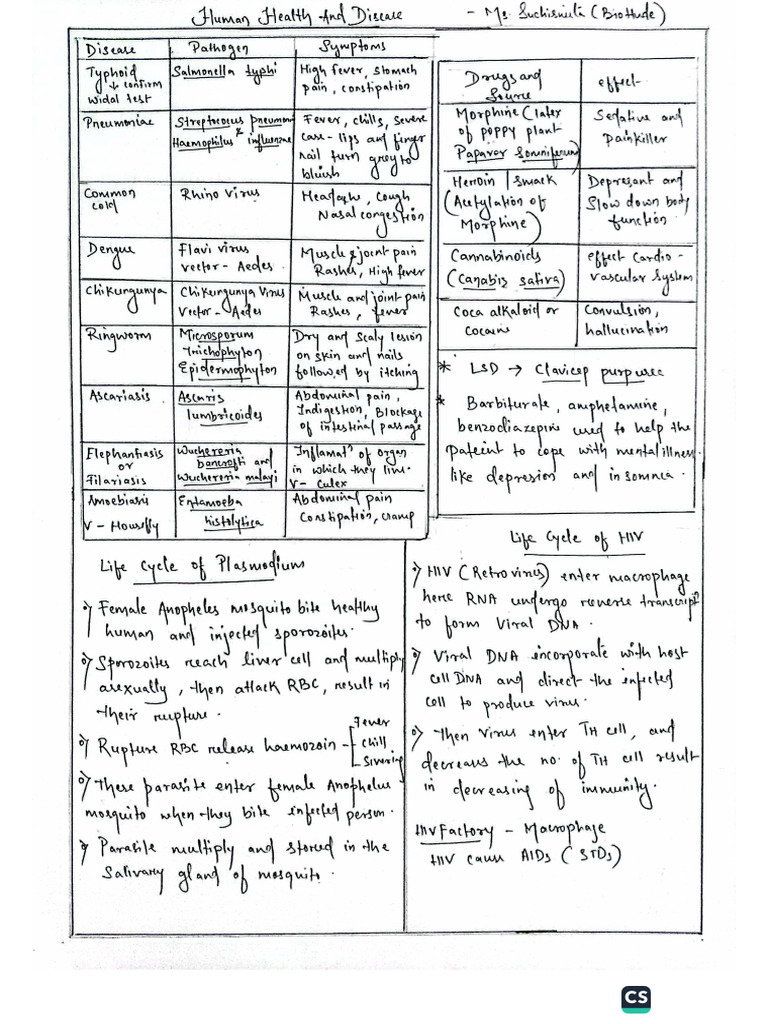 Human Health And Disease - Ms. Suchismita (BioHude)
Disease Pathogen Symptoms
Typhoid Salmonella typhi High fever, stomach
↓ confirm pain, constipation
widal test
Pneumoniae Streptococus pneumoni Fever, chills, severe
& Haemophilus influenzae case - lips and finger
nail turn grey to
bluish
Common Rhino Virus Headache, Cough
cold Nasal congestion
Dengue Flavi virus Muscle & joint pain
vector - Aedes Rashes, High fever
Chikungunya Chikungunya Virus Muscle and joint pain
Vector - Aedes Rashes, fever
Ringworm Microsporum Dry and Scaly lesion
Trichophyton on skin and nails
Epidermophyton followed by itching
Ascariasis Ascaris Abdominal pain,
lumbricoides Indigestion, Blockage
of intestinal passage
Elephantiasis Wuchereria Inflamatn of organ
or bancrofti and in which they live.
Filariasis Wuchereria malayi V- Culex
Amoebiasis Entamoeba Abdominal pain
V - Housefly histolytica Constipation, cramp
Drugs and effect
Source
Morphine (later Sedative and
of poppy plant Painkiller
Papavar Somniferum)
Heroin / smack Depresant and
(Acetylation of Slow down body
Morphine) function
Cannabinoids effect Cardio-
(Canabis sativa) vascular System
Coca alkaloid or Convulsion,
cocaine hallucination
* LSD → Clavicep purpurea
* Barbiturate, amphetamine,
benzodiazepins used to help the
pateint to cope with mental illness
like depresion and in somnea.
Life Cycle of Plasmodium
Female Anopheles mosquito bite healthy
human and injected sporozoites.
Sporozoites reach liver cell and multiply
asexually, then attack RBC, result in
their rupture.
Rupture RBC release haemozoin - Fever
Chill
Sivering
These parasite enter female Anophelus
mosquito when they bite infected person.
Parasite multiply and stored in the
Salivary gland of mosquito.
Life Cycle of HIV
HIV (Retrovirus) enter macrophage
here RNA undergo reverse transcript
to form Viral DNA.
Viral DNA incorporate with host
cell DNA and direct the infected
cell to produce virus.
Then Virus enter TH cell, and
decreases the no. of TH cell result
in decreasing of immunity.
HIV Factory - Macrophage
HIV cause AIDs (STDs)
CS